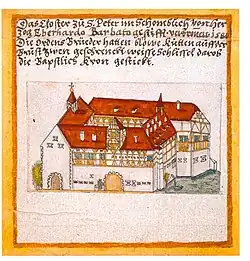 Das Closter zu S. Peter im Schönbuch von Her
zog Eberhardo Barbato gestifft. verbronnen 1580
Die ordens Brüeder hatten blawe Kutten auff der
Brust zwen geschrenckt weysse Schlüssel darob
die Bäpstlich Kron gestickt.